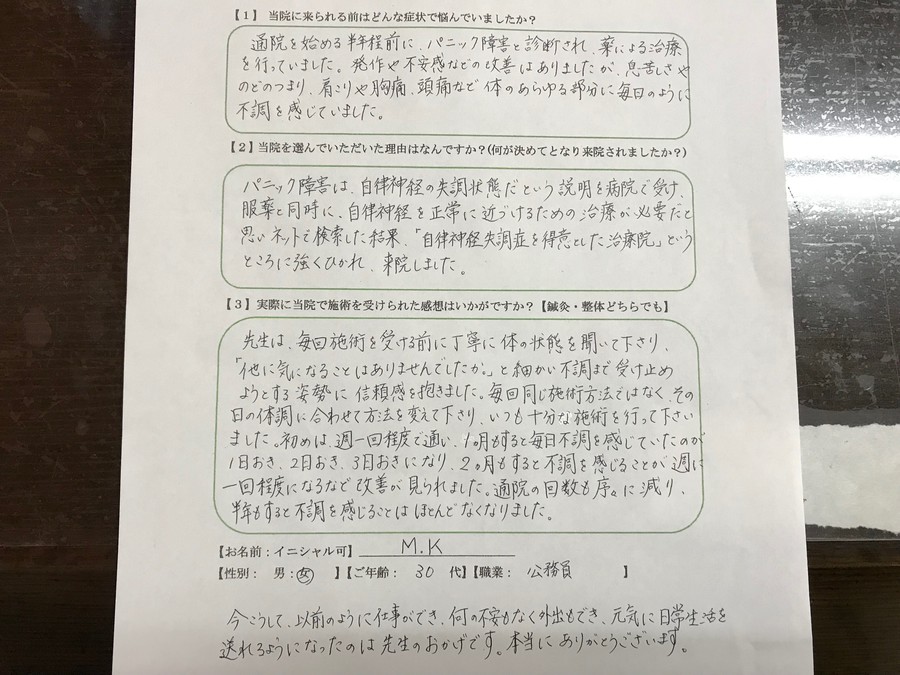 【1】 当院に来られる前はどんな症状で悩んでいましたか？
通院を始める半年程前に、パニック障害と診断され、薬による治療
を行っていました。発作や不安感などの改善はありましたが、息苦しさや
のどのつまり、肩こりや胸痛、頭痛など体のあらゆる部分に毎日のように
不調を感じていました。
【2】当院を選んでいただいた理由はなんですか？(何が決めてとなり来院されましたか？)
パニック障害は、自律神経の失調状態だという説明を病院で受け、
服薬と同時に、自律神経を正常に近づけるための治療が必要だと
思いネットで検索した結果、「自律神経失調症を得意とした治療院」という
ところに強くひかれ、来院しました。
【3】実際に当院で施術を受けられた感想はいかがですか？【鍼灸・整体どちらでも】
先生は、毎回施術を受ける前に丁寧に体の状態を聞いて下さり、
「他に気になることはありませんでしたか。」と細かい不調まで受け止め
ようとする姿勢に信頼感を抱きました。毎回同じ施術方法ではなく、その
日の体調に合わせて方法を変えて下さり、いつも十分な施術を行って下さい
ました。初めは、週一回程度で通い、1ヶ月もすると毎日不調を感じていたのが
1日おき、2日おき、3日おきになり、2ヶ月もすると不調を感じることが週に
一回程度になるなど改善が見られました。通院の回数も序々に減り、
半年もすると不調を感じることはほとんどなくなりました。
【お名前：イニシャル可】 M.K
【性別： 男：女 】【ご年齢： 30 代】【職業： 公務員 】
今こうして、以前のように仕事ができ、何の不安もなく外出もでき、元気に日常生活を
送れるようになったのは先生のおかげです。本当にありがとうございます。